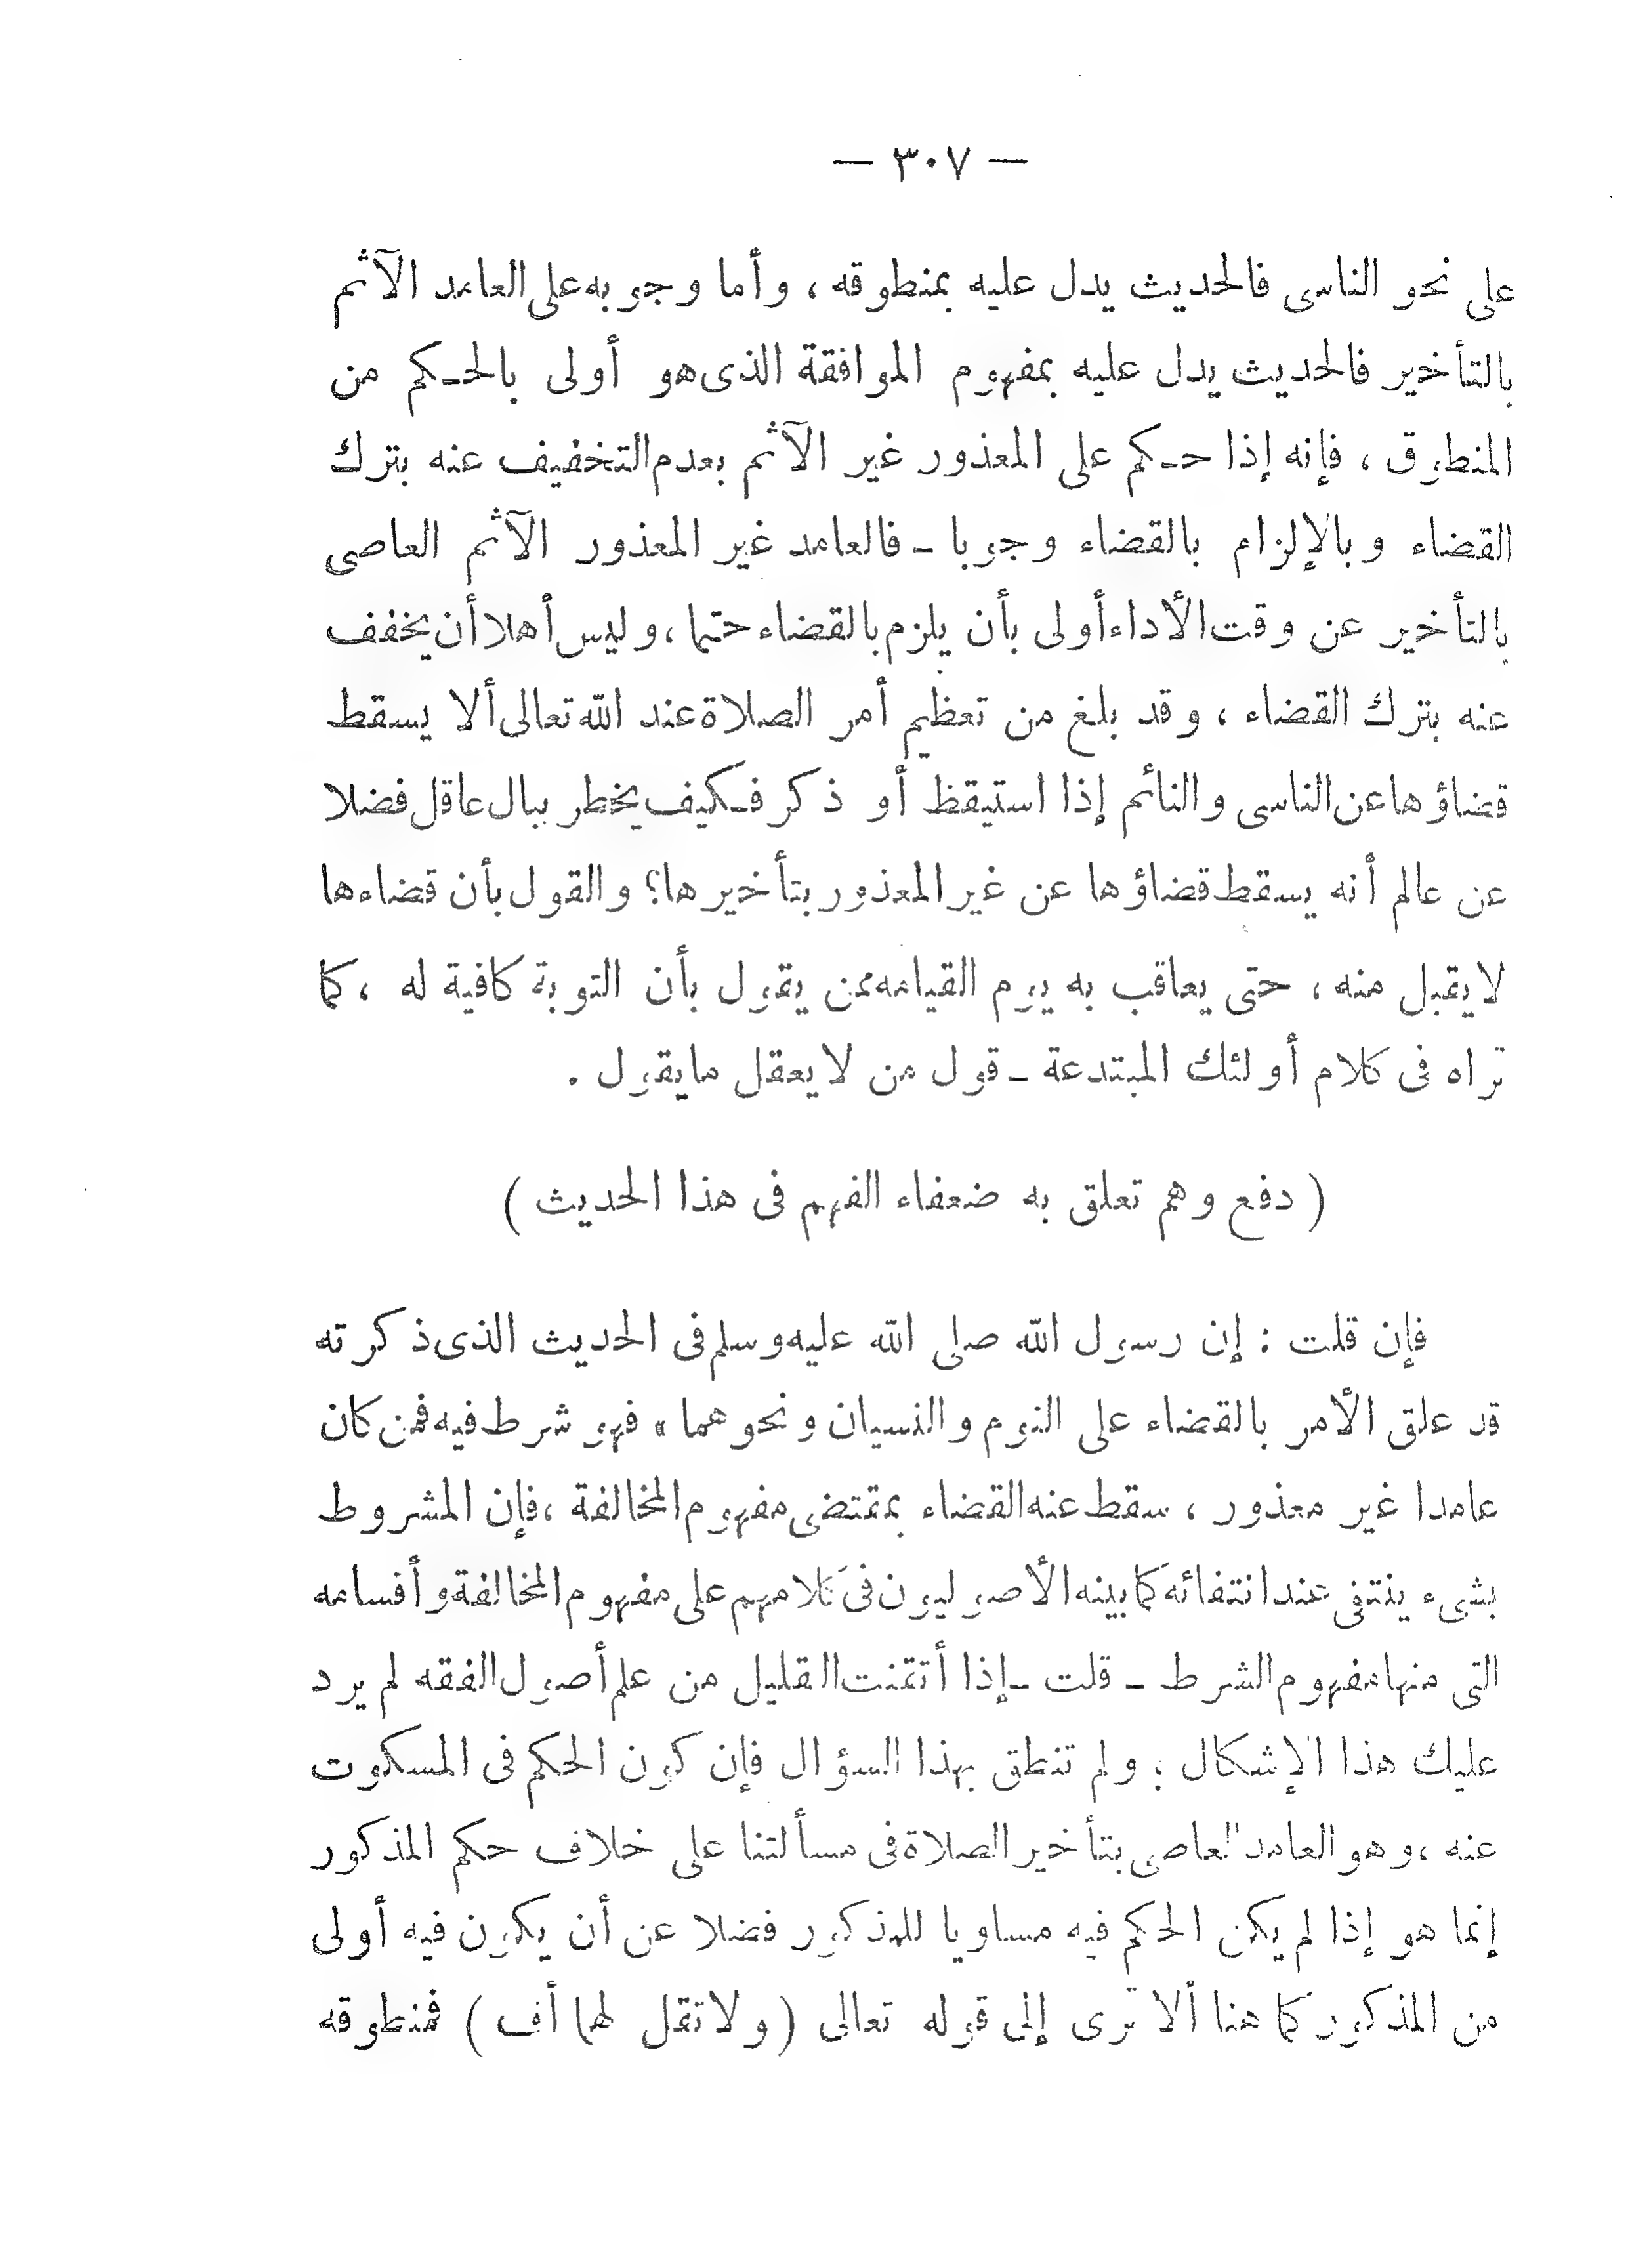 — ٣٠٧ —
على نحو الناسى فالحديث يدل عليه بمنطوقه ، وأما وجوبه على العامد الآثم
بالتأخير فالحديث يدل عليه بمفهوم الموافقة الذى هو أولى بالحـكم من
المنطوق ، فإنه إذا حـكم على المعذور غير الآثم بعدم التخفيف عنه بترك
القضاء وبالإلزام بالقضاء وجوبا ـ فالعامد غير المعذور الآثم العاصى
بالتأخير عن وقت الأداء أولى بأن يلزم بالقضاء حتما ، وليس أهلا أن يخفف
عنه بترك القضاء ، وقد بلغ من تعظيم أمر الصلاة عند الله تعالى ألا يسقط
قضاؤها عن الناسى والنائم إذا استيقظ أو ذكر فـكيف يخطر ببال عاقل فضلا
عن عالم أنه يسقط قضاؤها عن غير المعذور بتأخيرها؟ والقول بأن قضاءها
لا يقبل منه ، حتى يعاقب به يوم القيامه ممن يقول بأن التوبة كافية له ، كما
تراه فى كلام أولئك المبتدعة ـ قول من لا يعقل ما يقول .
( دفع وهم تعلق به ضعفاء الفهم فى هذا الحديث )
فإن قلت : إن رسول الله صلى الله عليه وسلم فى الحديث الذى ذكرته
قد علق الأمر بالقضاء على النوم والنسيان ونحوهما ، فهو شرط فيه فمن كان
عامدا غير معذور ، سقط عنه القضاء بمقتضى مفهوم المخالفة ، فإن المشروط
بشىء ينتفى عند انتفائه كما بينه الأصوليون فى كلامهم على مفهوم المخالفة وأقسامه
التى منها مفهوم الشرط ـ قلت ـ إذا أتقنت القليل من علم أصول الفقه لم يرد
عليك هذا الإشكال ; ولم تنطق بهذا السؤال فإن كون الحكم فى المسكوت
عنه ، وهو العامد العاصى بتأخير الصلاة فى مسألتنا على خلاف حكم المذكور
إنما هو إذا لم يكن الحكم فيه مساويا للمذكور فضلا عن أن يكون فيه أولى
من المذكور كما هنا ألا ترى إلى قوله تعالى ( ولا تقل لهما أف ) فمنطوقه